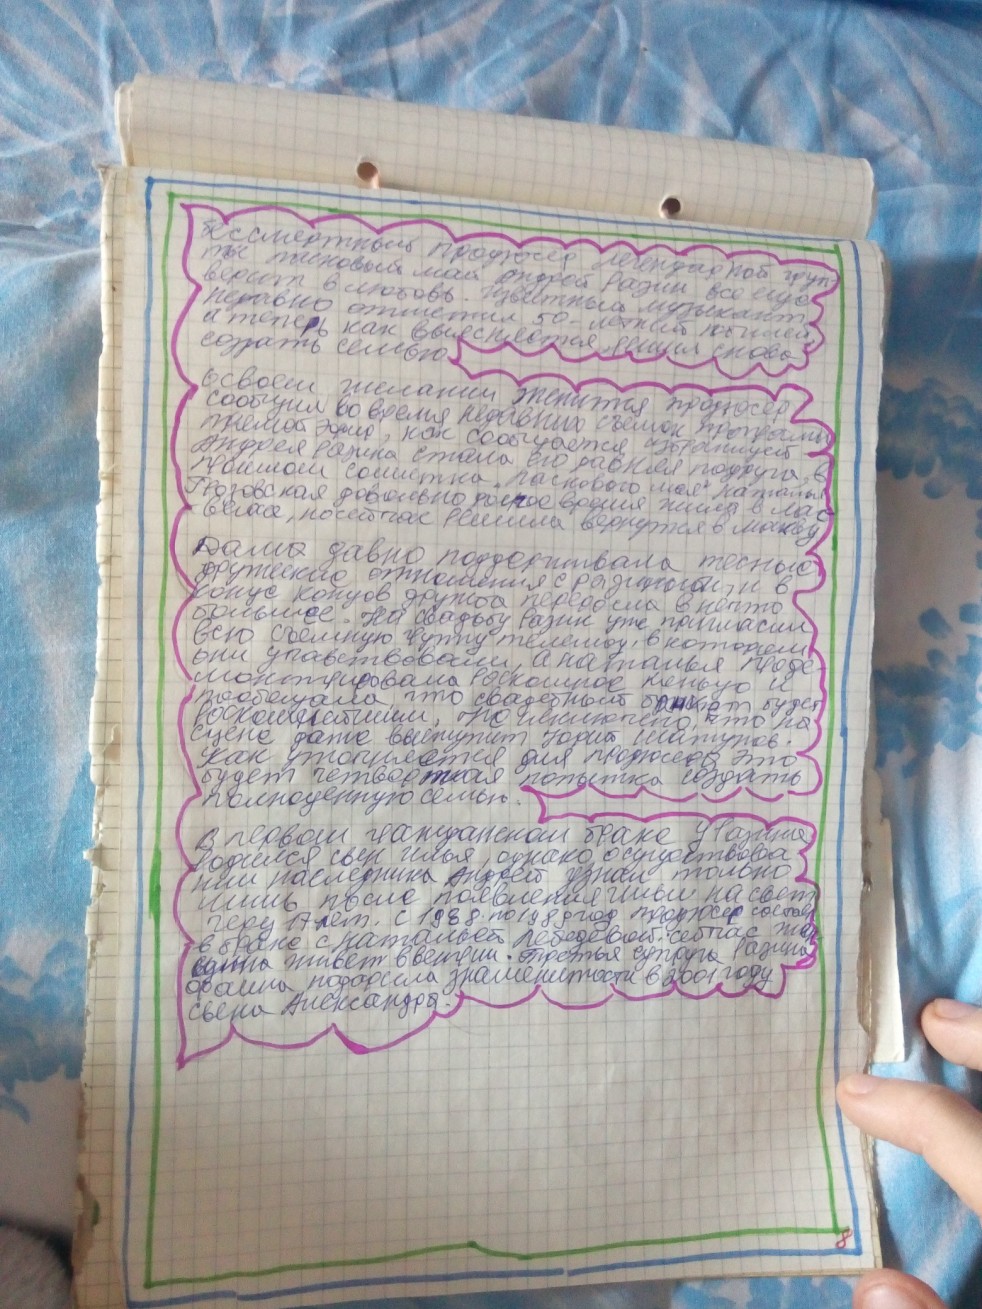 Бессмертный продюсер легендарной груп-
пы ласковый май Андрей Разин все ещё
верит в любовь. Известный музыкант
недавно отметил 50-летний юбилей
а теперь как выясняется решил снова
создать семью
о своем желании женится продюсер
сообщил во время недавних съемок программы
как сообщается избранницей
Андрея Разина стала его давняя подруга, в
прошлом солистка „Ласкового мая" Наталья
Грозовская довольно долгое время жила в Лас
вегасе, но сейчас решила вернутся в Москву
Дама давно поддерживала тесные
дружеские отношения с и в
конце концов дружба переросла в нечто
большее. На свадьбу Разин уже пригласил
всю съемную группу телешоу, в котором
они участвовали, а Наталья проде-
монстрировала роскошное кольцо и
пообещала, что свадебный банкет будет
что на
сцене даже выступит Юрий Шатунов.
Как уточняется для продюсера это
будет четвертная попытка создать
полноценную семью.
В первом гражданском браке у Разина
родился свен Илья, однако о существова
нии наследника Андрей узнал только
лишь после появления Ильи на свет
через 17 лет. с 1988 по 1989 год продюсер состоял
в браке с Натальей Лебедевой. сейчас
живет в венгрии. Третья супруга Разина
Фаина подарила знаменитости в 2001 году
свена Александра.
8